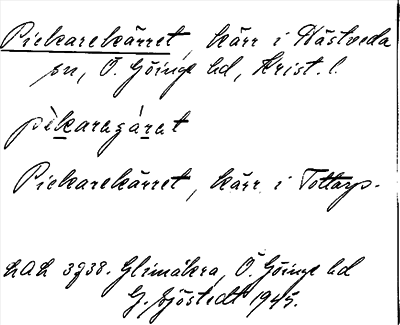 Pickarekärret, kärr i Hästveda
sn, Ö. Göinge hd, Krist. l.
pìkaragárat
Pickarekärret, kärr i Tottarp.
LAL 3738. Glimåkra, Ö. Göinge hd
G. Sjöstedt 1945.